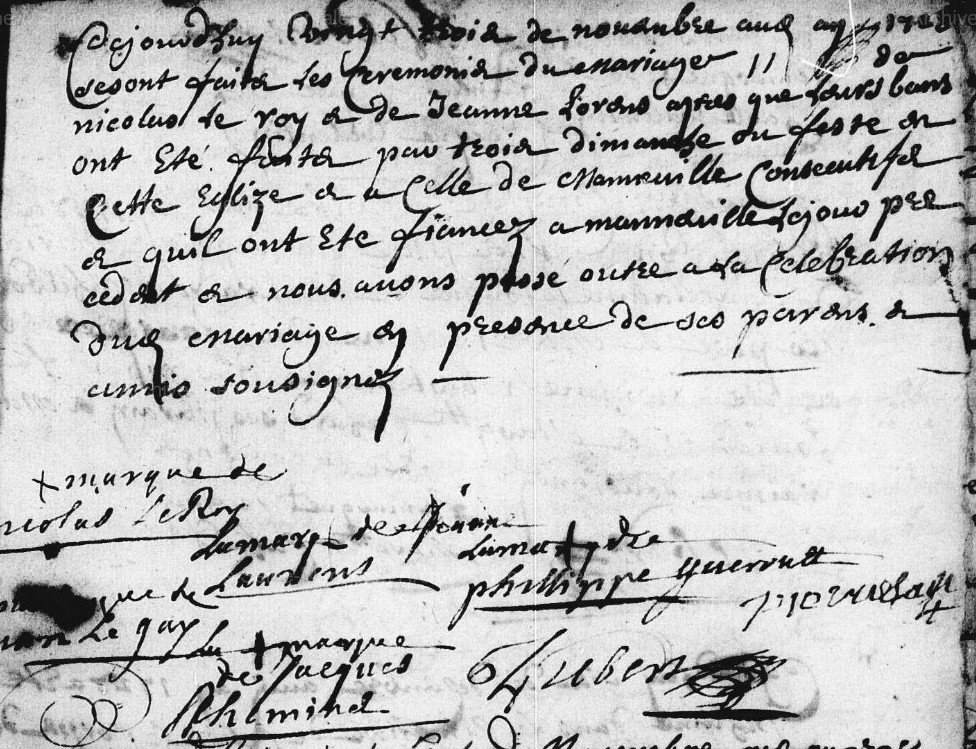 Cejourdhuy vingt trois de novembre aud an 1708
se sont faites les ceremonies du mariage de
nicolas le roy & de Jeanne Lorens apres que leurs bans
ont Eté faits par trois dimanche ou feste en
Cette Eglize & a Celle de Manneville Consecutifs
& quil ont Ete fiancez a manneville le jour pre
cedent & nous avons passe outre a la Celebration
dud mariage en presence de ses parens &
amis sousignez
+ marque de
nicolas LeRoy
La marq de Jeanne
Laurens
La mar + q de
phillippe queroult
marque de
le gay
La + marque
de Jacques
hubert
Novembre